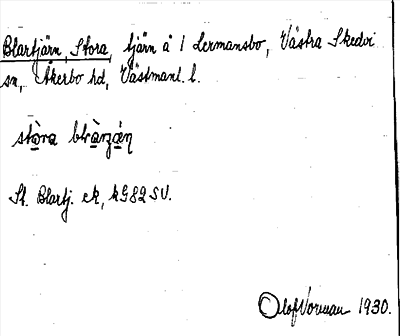 Blartjärn, Stora, tjärn å 1 Lermansbo, Västra Skedvi
sn, Åkerbo hd, Västmanl. l.
stòra
St. Blartj. ek, kG82SV.
Olof Vorman 1930.